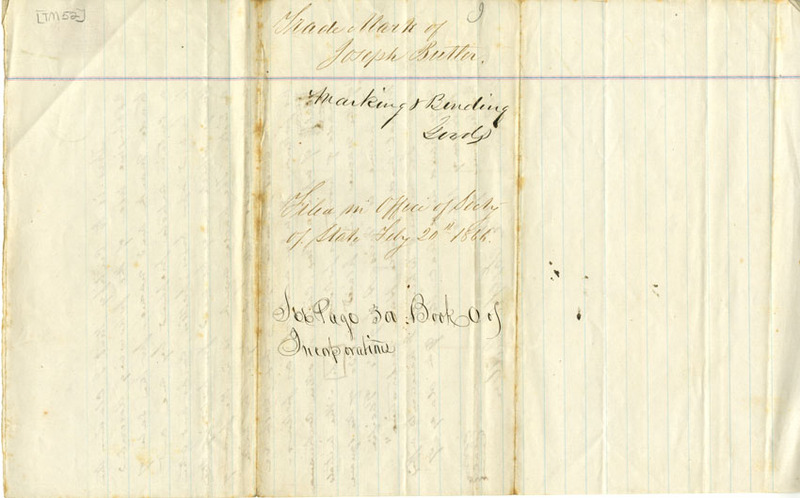 [TM52]
Trade Mark of
Joseph Butler.
Marking & Binding
Goods
Filed in Office of Secty
of State Feby 20th 1866.
Page 50 Book O of
Incorporations